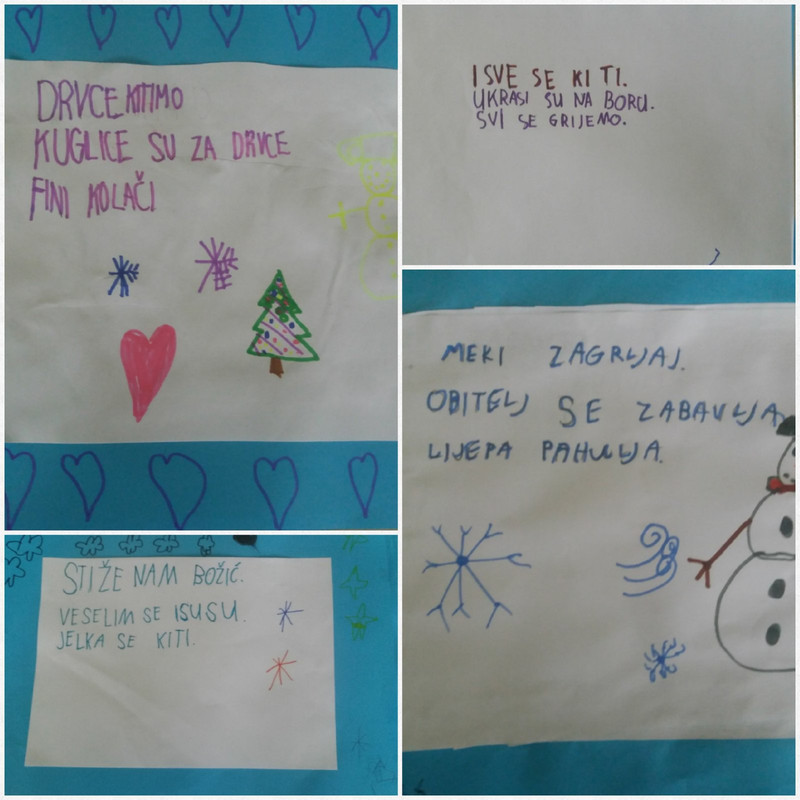 DRVCE KITIMO
KUGLICE SU ZA DRVCE
FINI KOLAČI
I SVE SE KITI.
UKRASI SU NA BORU.
SVI SE GRIJEMO.
MEKI ZAGRLJAJ.
OBITELJ SE ZABAVLJA.
LIJEPA PAHULJA.
STIŽE NAM BOŽIĆ.
VESELIM SE ISUSU.
JELKA SE KITI.